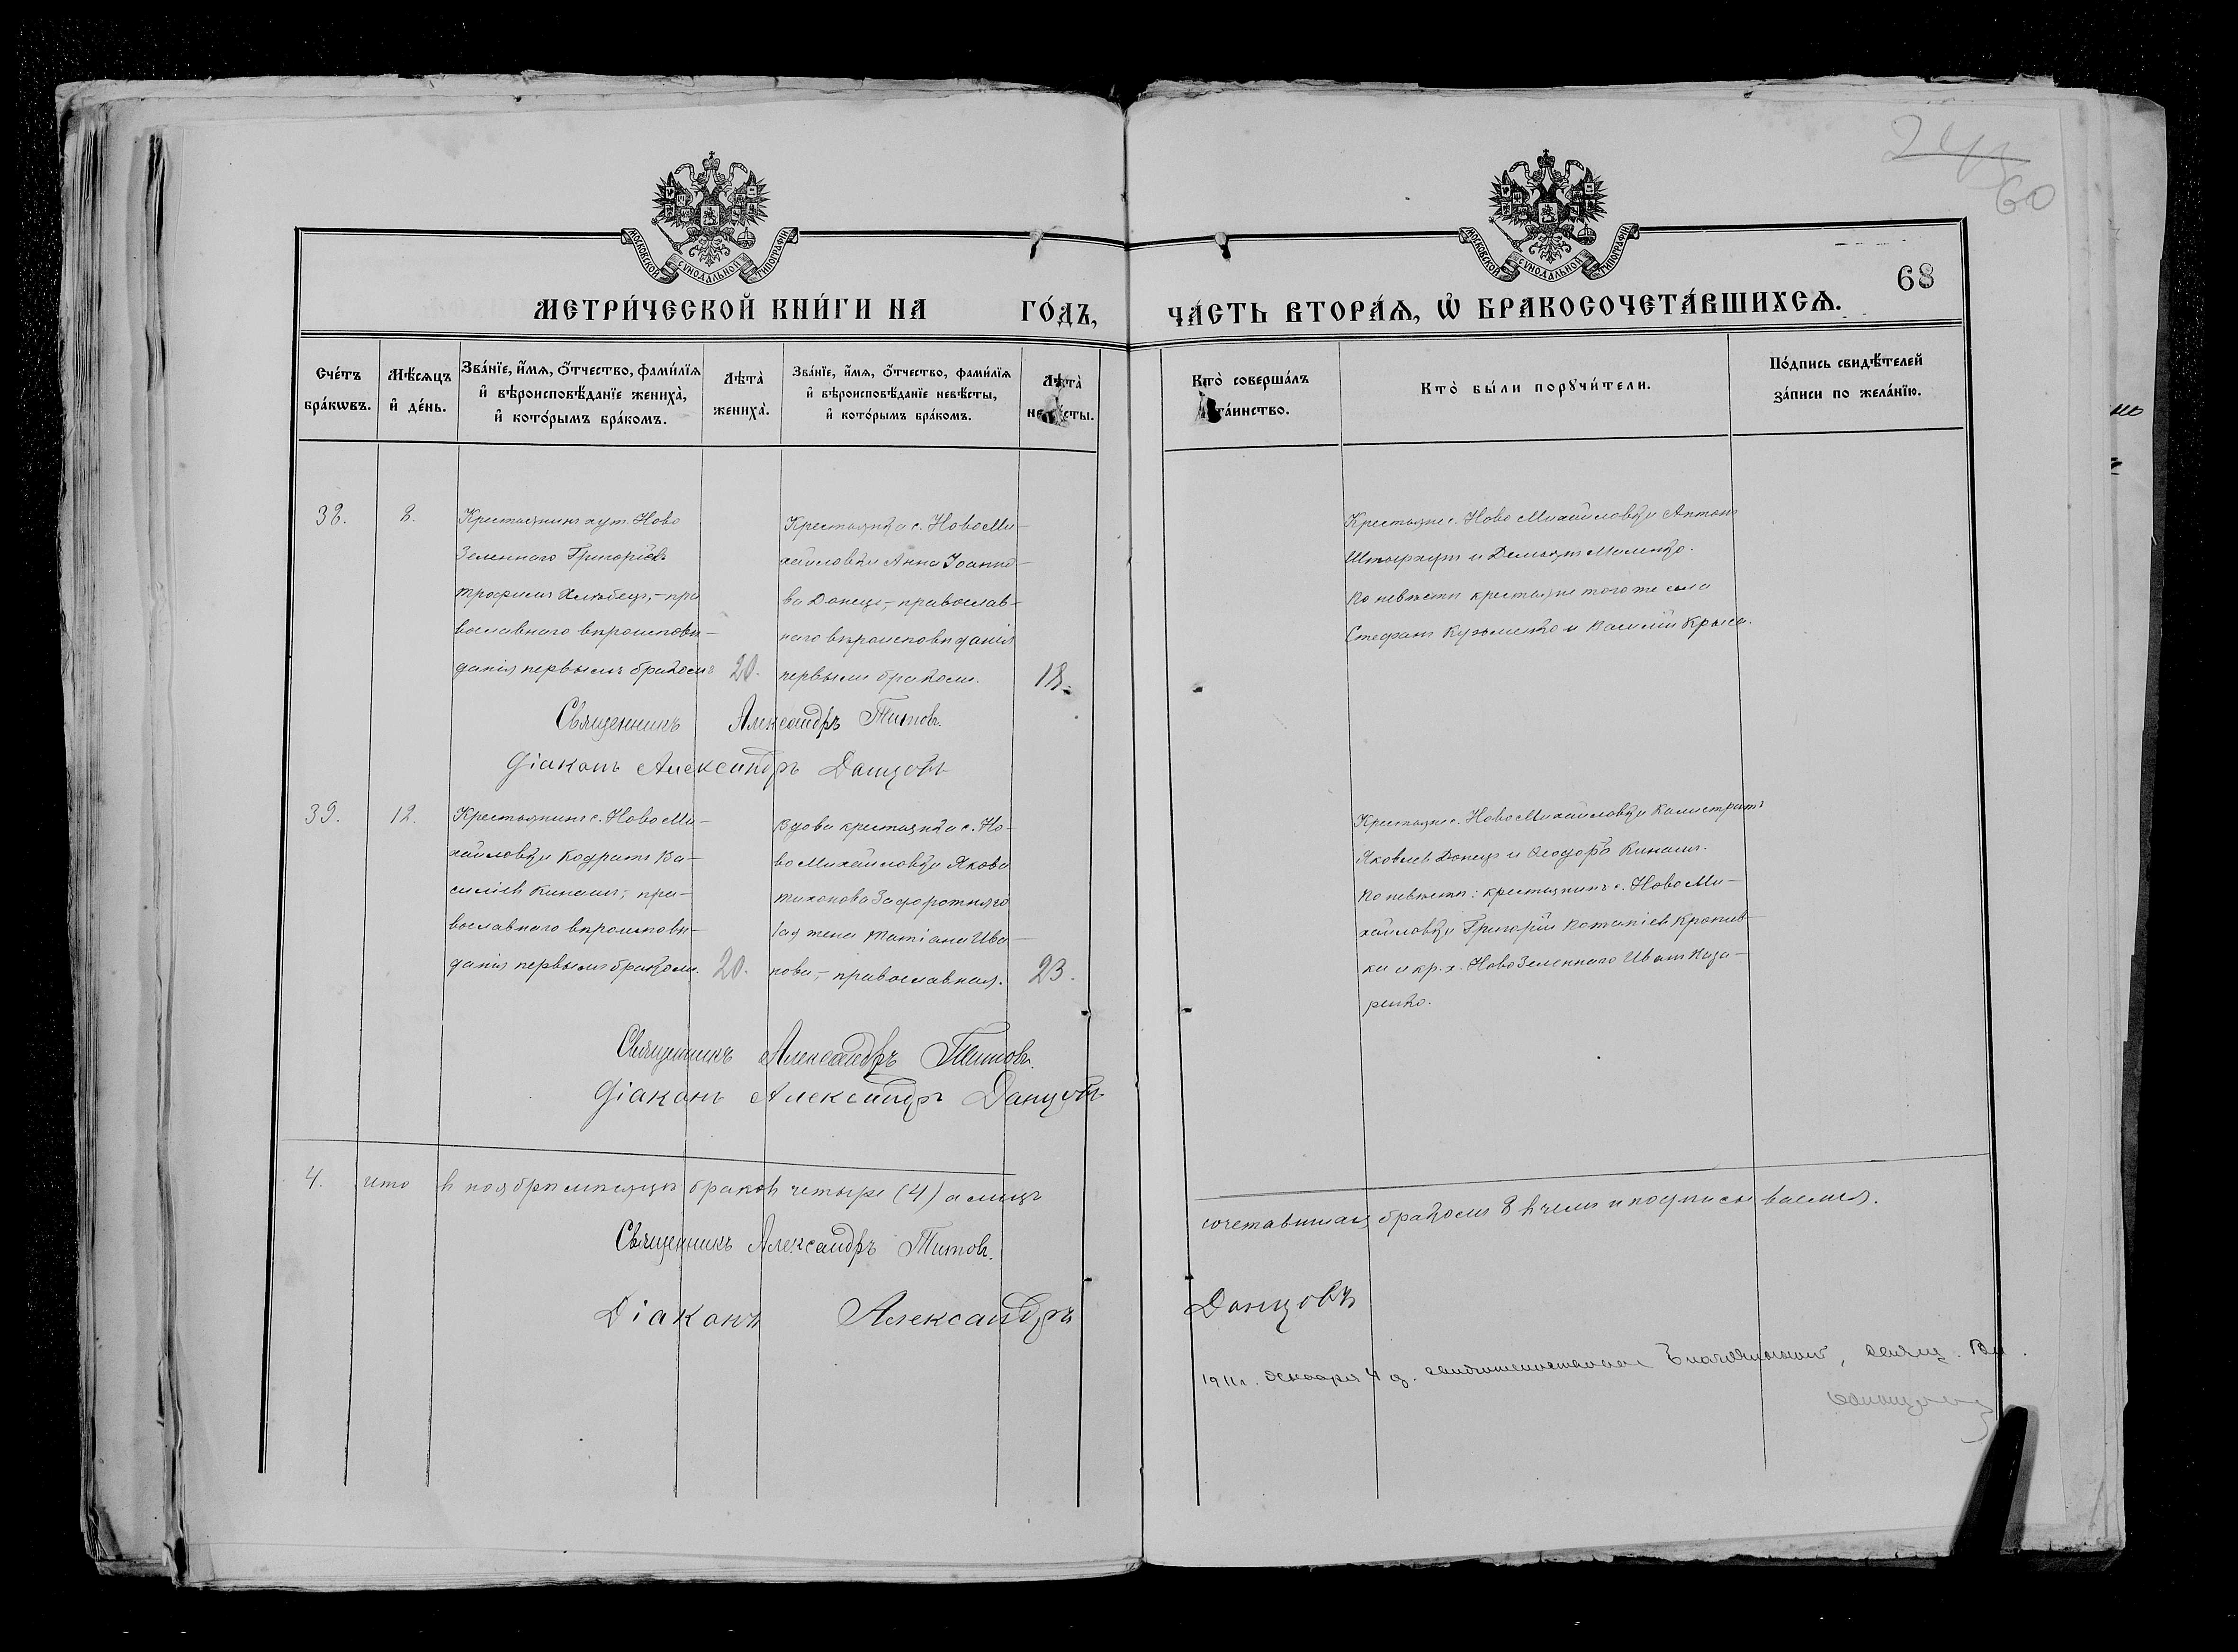 243
60
68
МОСКОВСКОЙ СѴНОДАЛЬНОЙ ТИПОГРАФІИ
МОСКОВСКОЙ СѴНОДАЛЬНОЙ ТИПОГРАФІИ
МЕТРИ́ЧЕСКОЙ КНИ́ГИ НА ГО́ДЪ,
ЧА́СТЬ ВТОРА́Ѧ, Ѽ БРАКОСОЧЕТА́ВШИХСѦ.
Сче́тъ бра́кѡвъ.
Мѣ́сяцъ и҆ де́нь.
Зва́нїе, и҆́мя, ѻ҆́тчество, фами́лїя и҆ вѣроисповѣ́данїе жениха̀, и҆ кото́рымъ бра́комъ.
Лѣта̀ жениха̀.
Зва́нїе, и҆́мя, ѻ҆́тчество, фами́лїя и҆ вѣроисповѣ́данїе невѣ́сты, и҆ кото́рымъ бра́комъ.
Лѣта̀ невѣ́сты.
Кто̀ соверша́лъ та́инство.
Кто̀ бы́ли порꙋчи́тели.
По́дпись свидѣ́телей за́писи по жела́нїю.
38.
8.
Крестьянинъ хут. Ново
Зеленнаго Григоріевъ
Трофимъ Хлѣбецъ, – пра
вославнаго вѣроисповѣ-
данія первымъ бракомъ
20.
Крестьянка с. НовоМи-
хайловки Анна Іоанно-
ва Донецъ, – православ-
наго вѣроисповѣданія
первымъ бракомъ.
18.
Крестьяне с. Ново Михайловки Антонъ
и Демьянъ Маленко.
По невѣстѣ крестьяне того же села
Стефанъ Кузьменко и Василій Крыса.
Священникъ Александръ Титовъ.
Діаконъ Александръ Данцовъ
39.
12.
Крестьянинъ с. НовоМи-
хайловки Кодратъ Ва-
силіевъ Кинашъ, – пра-
вославнаго вѣроисповѣ-
данія первымъ бракомъ.
20.
Вдова крестьянка с. Но-
воМихайловки Якова
Тихонова Задоротняго
1ая жена Татіана Ива-
нова, – православная.
23.
Крестьяне с. НовоМихайловки Калистратъ
Яковлевъ Донецъ и Ѳеодоръ Кинашъ.
По невѣстѣ: крестьянинъ с. НовоМи-
хайловки Григорій Потапіевъ Кропив-
ка и кр. х. НовоЗеленнаго Иванъ Наза-
ренко.
Священникъ Александръ Титовъ.
Діаконъ Александръ Данцовъ
4. Итого въ ноябрѣ мѣсяцѣ браковъ четыре (4) а лицъ
сочетавшихся бракомъ 8 въ чемъ и подписываемся.
Священникъ Александръ Титовъ.
Діаконъ Александръ
Данцовъ
1911 г. декабря 4 д.